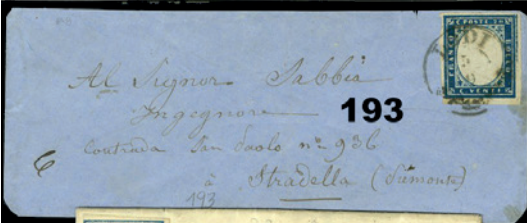 C. POSTE 20
FRANCO
BOLLO
C. VENTI
LODI
Al Signor Sabbia
Ingegnere
193
Contrada San Paolo nº 936
à Stradella (Piemonte)
193